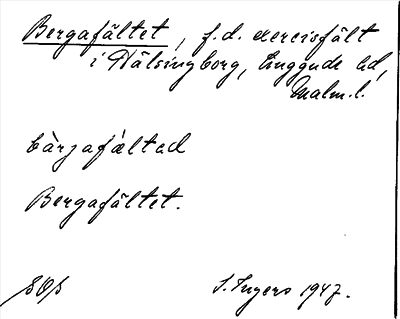 Bergafältet, f.d. exercisfält
i Hälsingborg, Luggude hd,
Malm. l.
bàrjafáltad
Bergafältet.
SOB
S. Ingers 1947.